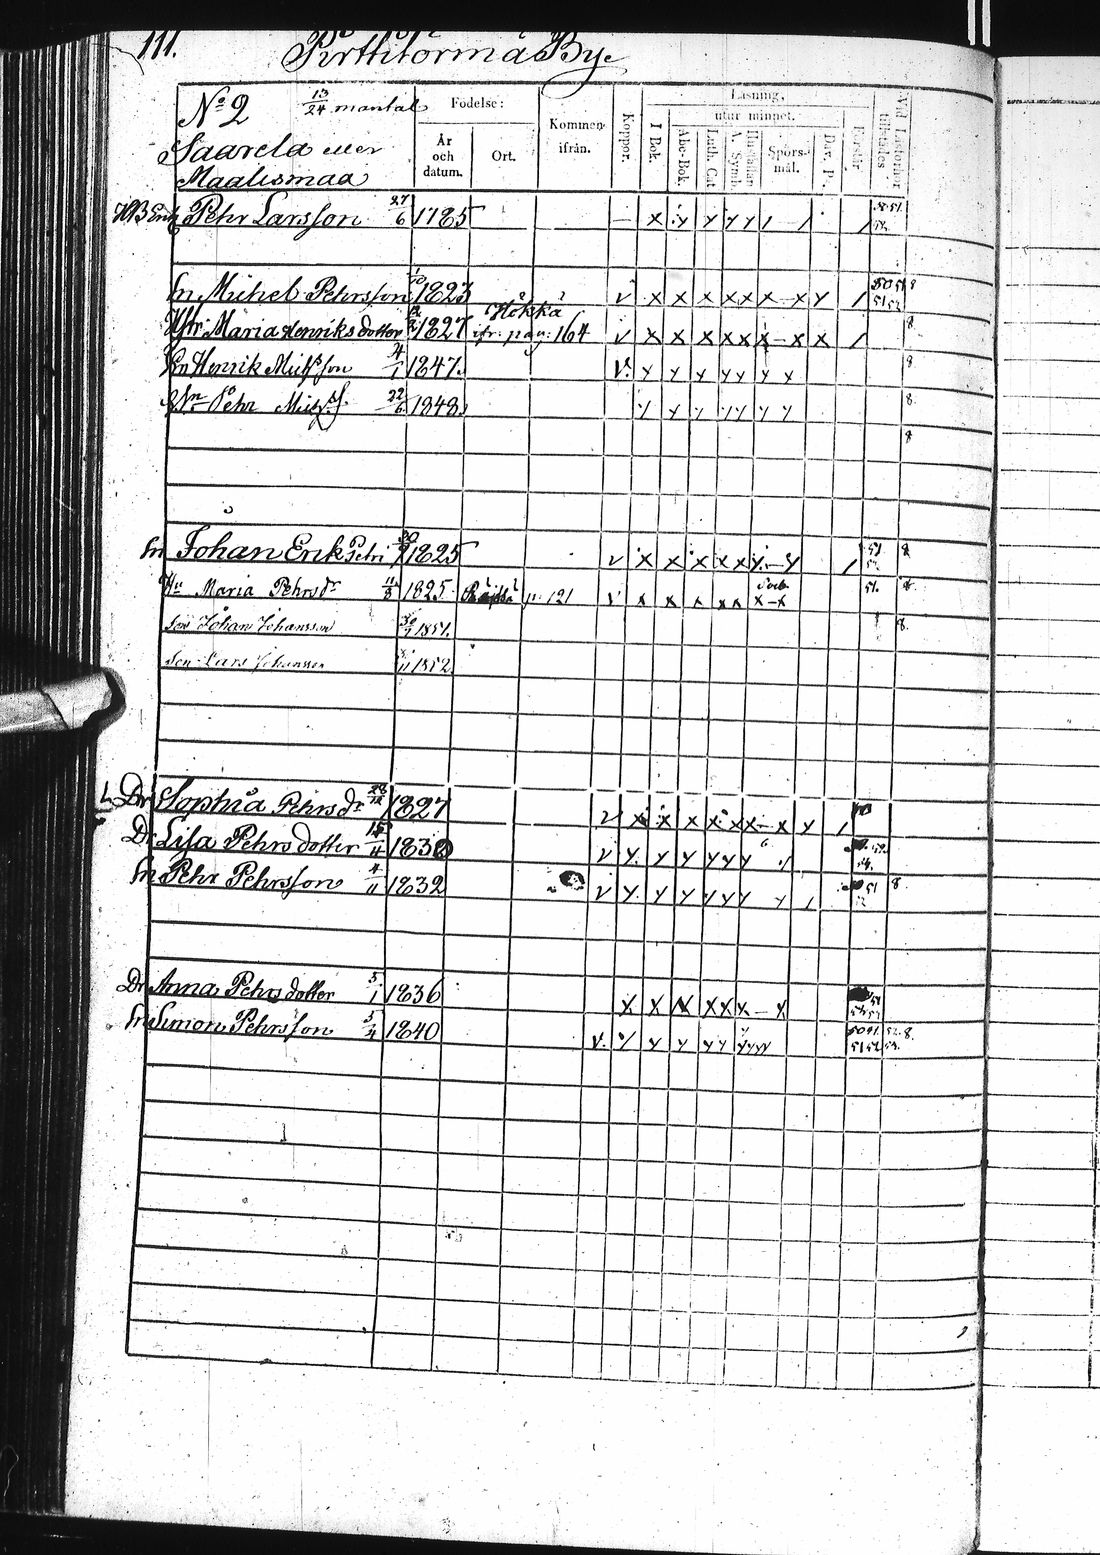 111. Pirttitörmä By.
No 2 13/24 mantal
Saarela eller
Maalismaa
Födelse:
År och datum.
Ort.
Kommen ifrån.
Koppor.
Läsning,
utur minnet.
I Bok.
Abc-Bok.
Luth. Cat
A. Symb.
Hustaflan
Spörs-mål.
Dav. P.
Förstår
Vid Läsförhör tillstädes
Pehr Larsson 27/6 1785 — x y y y y / /
Sn Michel Pehrsson 1823 v x x x x x x - x y /
Hustr Maria Henriksdotter 1827 Hökkä ifr. pag. 164 v x x x x x x - x x / 8
Sn Henrik Michsson 4/1 1847. v. y y y y y y x 8
Sn Pehr Michs S. 22/6 1848. y y y y y y y 8
8
Sn Johan Erik Petri 1825 v x x x x x y - y / 51. 8
Hu Maria Pehrsdr 11/3 1825. p. 121 v x x x x x x - x 51. 8
Son Johan Johansson 1851. 8.
Son Lars Johansson 1852.
Dr Sophia Pehrsdr 28/12 1827 v x x x x x x - x y /
Dr Lisa Pehrsdotter 15/4 1830 v y. y y y y y
Sn Pehr Pehrsson 4/11 1832 v y. y y y y y y / 51 8
Dr Anna Pehrsdotter 5/1 1836 x x x x x x - x
Sn Simon Pehrsson 5/4 1840 v. y y y y y 8.